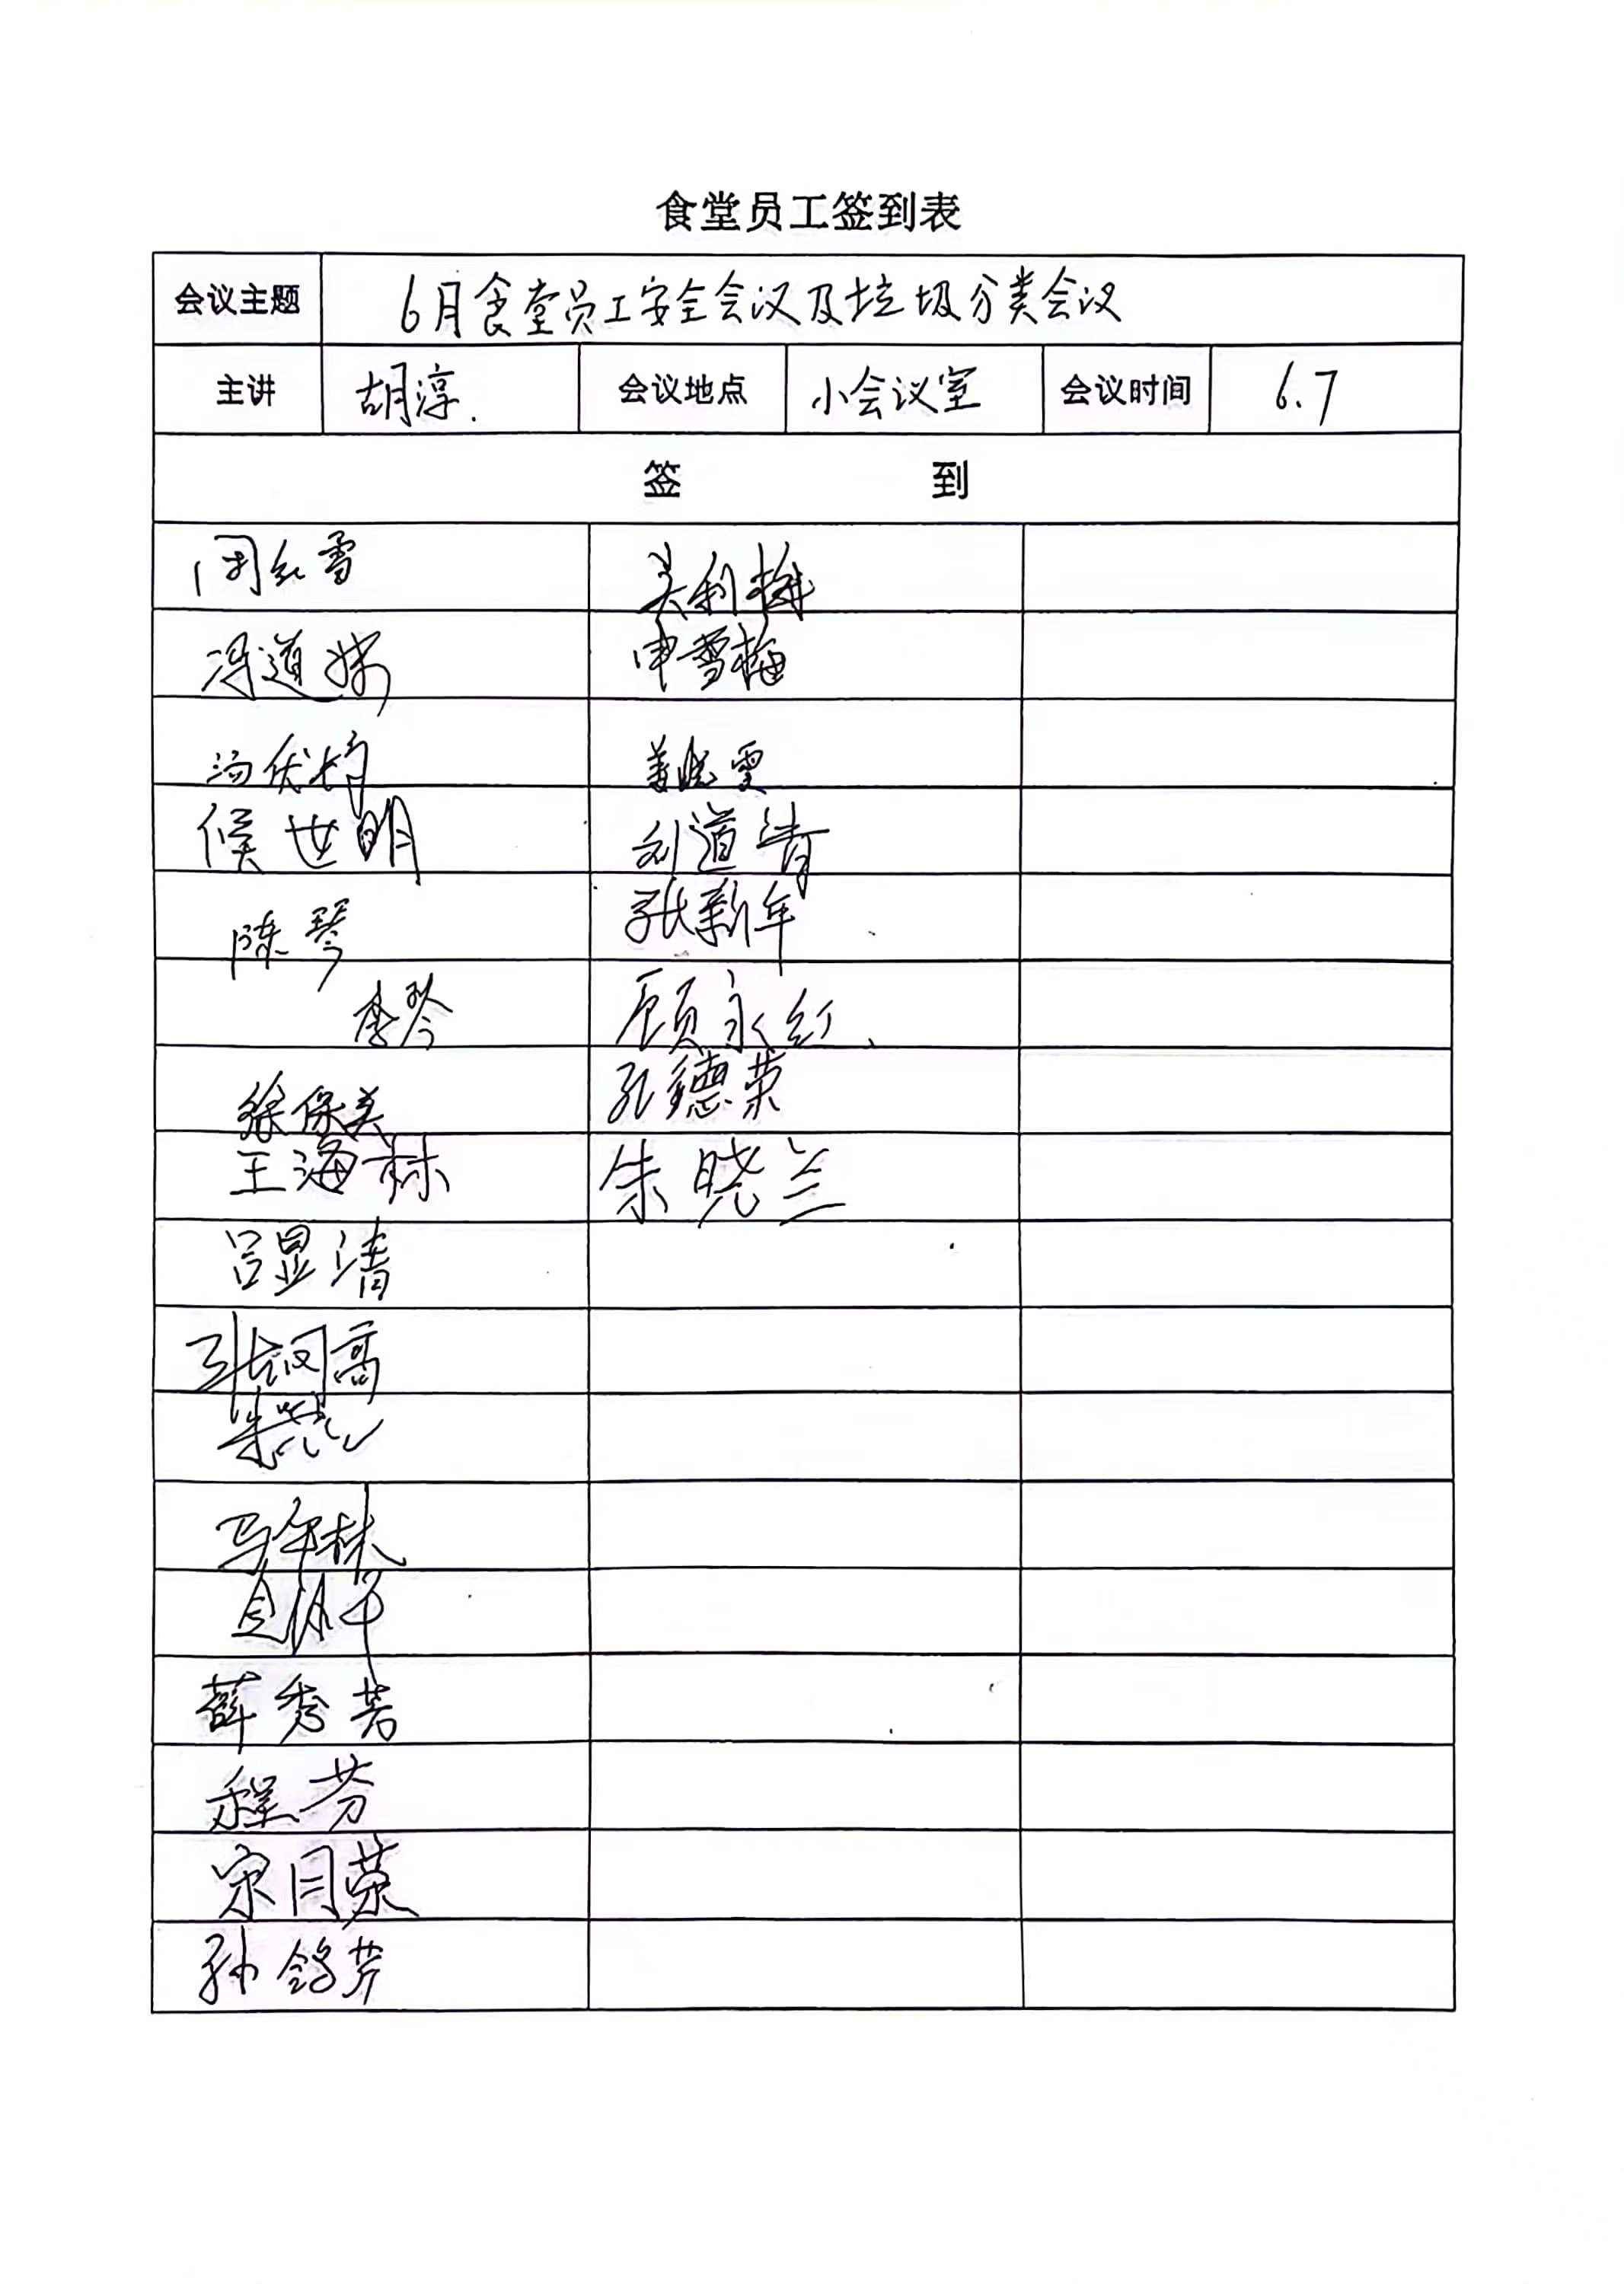 食堂员工签到表
会议主题 6月食堂员工安全会议及垃圾分类会议
主讲 胡淳. 会议地点 小会议室 会议时间 6.7
签 到
周红雪 吴利梅
冯道娣 申雪梅
汤伏 姜晓雯
侯世明 刘道青
陈琴 张新年
李琴 顾永红
徐保美 孔德荣
王海林 朱晓兰
吕显清
张闵高
朱
马年林
薛秀芳
程芬
宋月荣
孙鸽芹